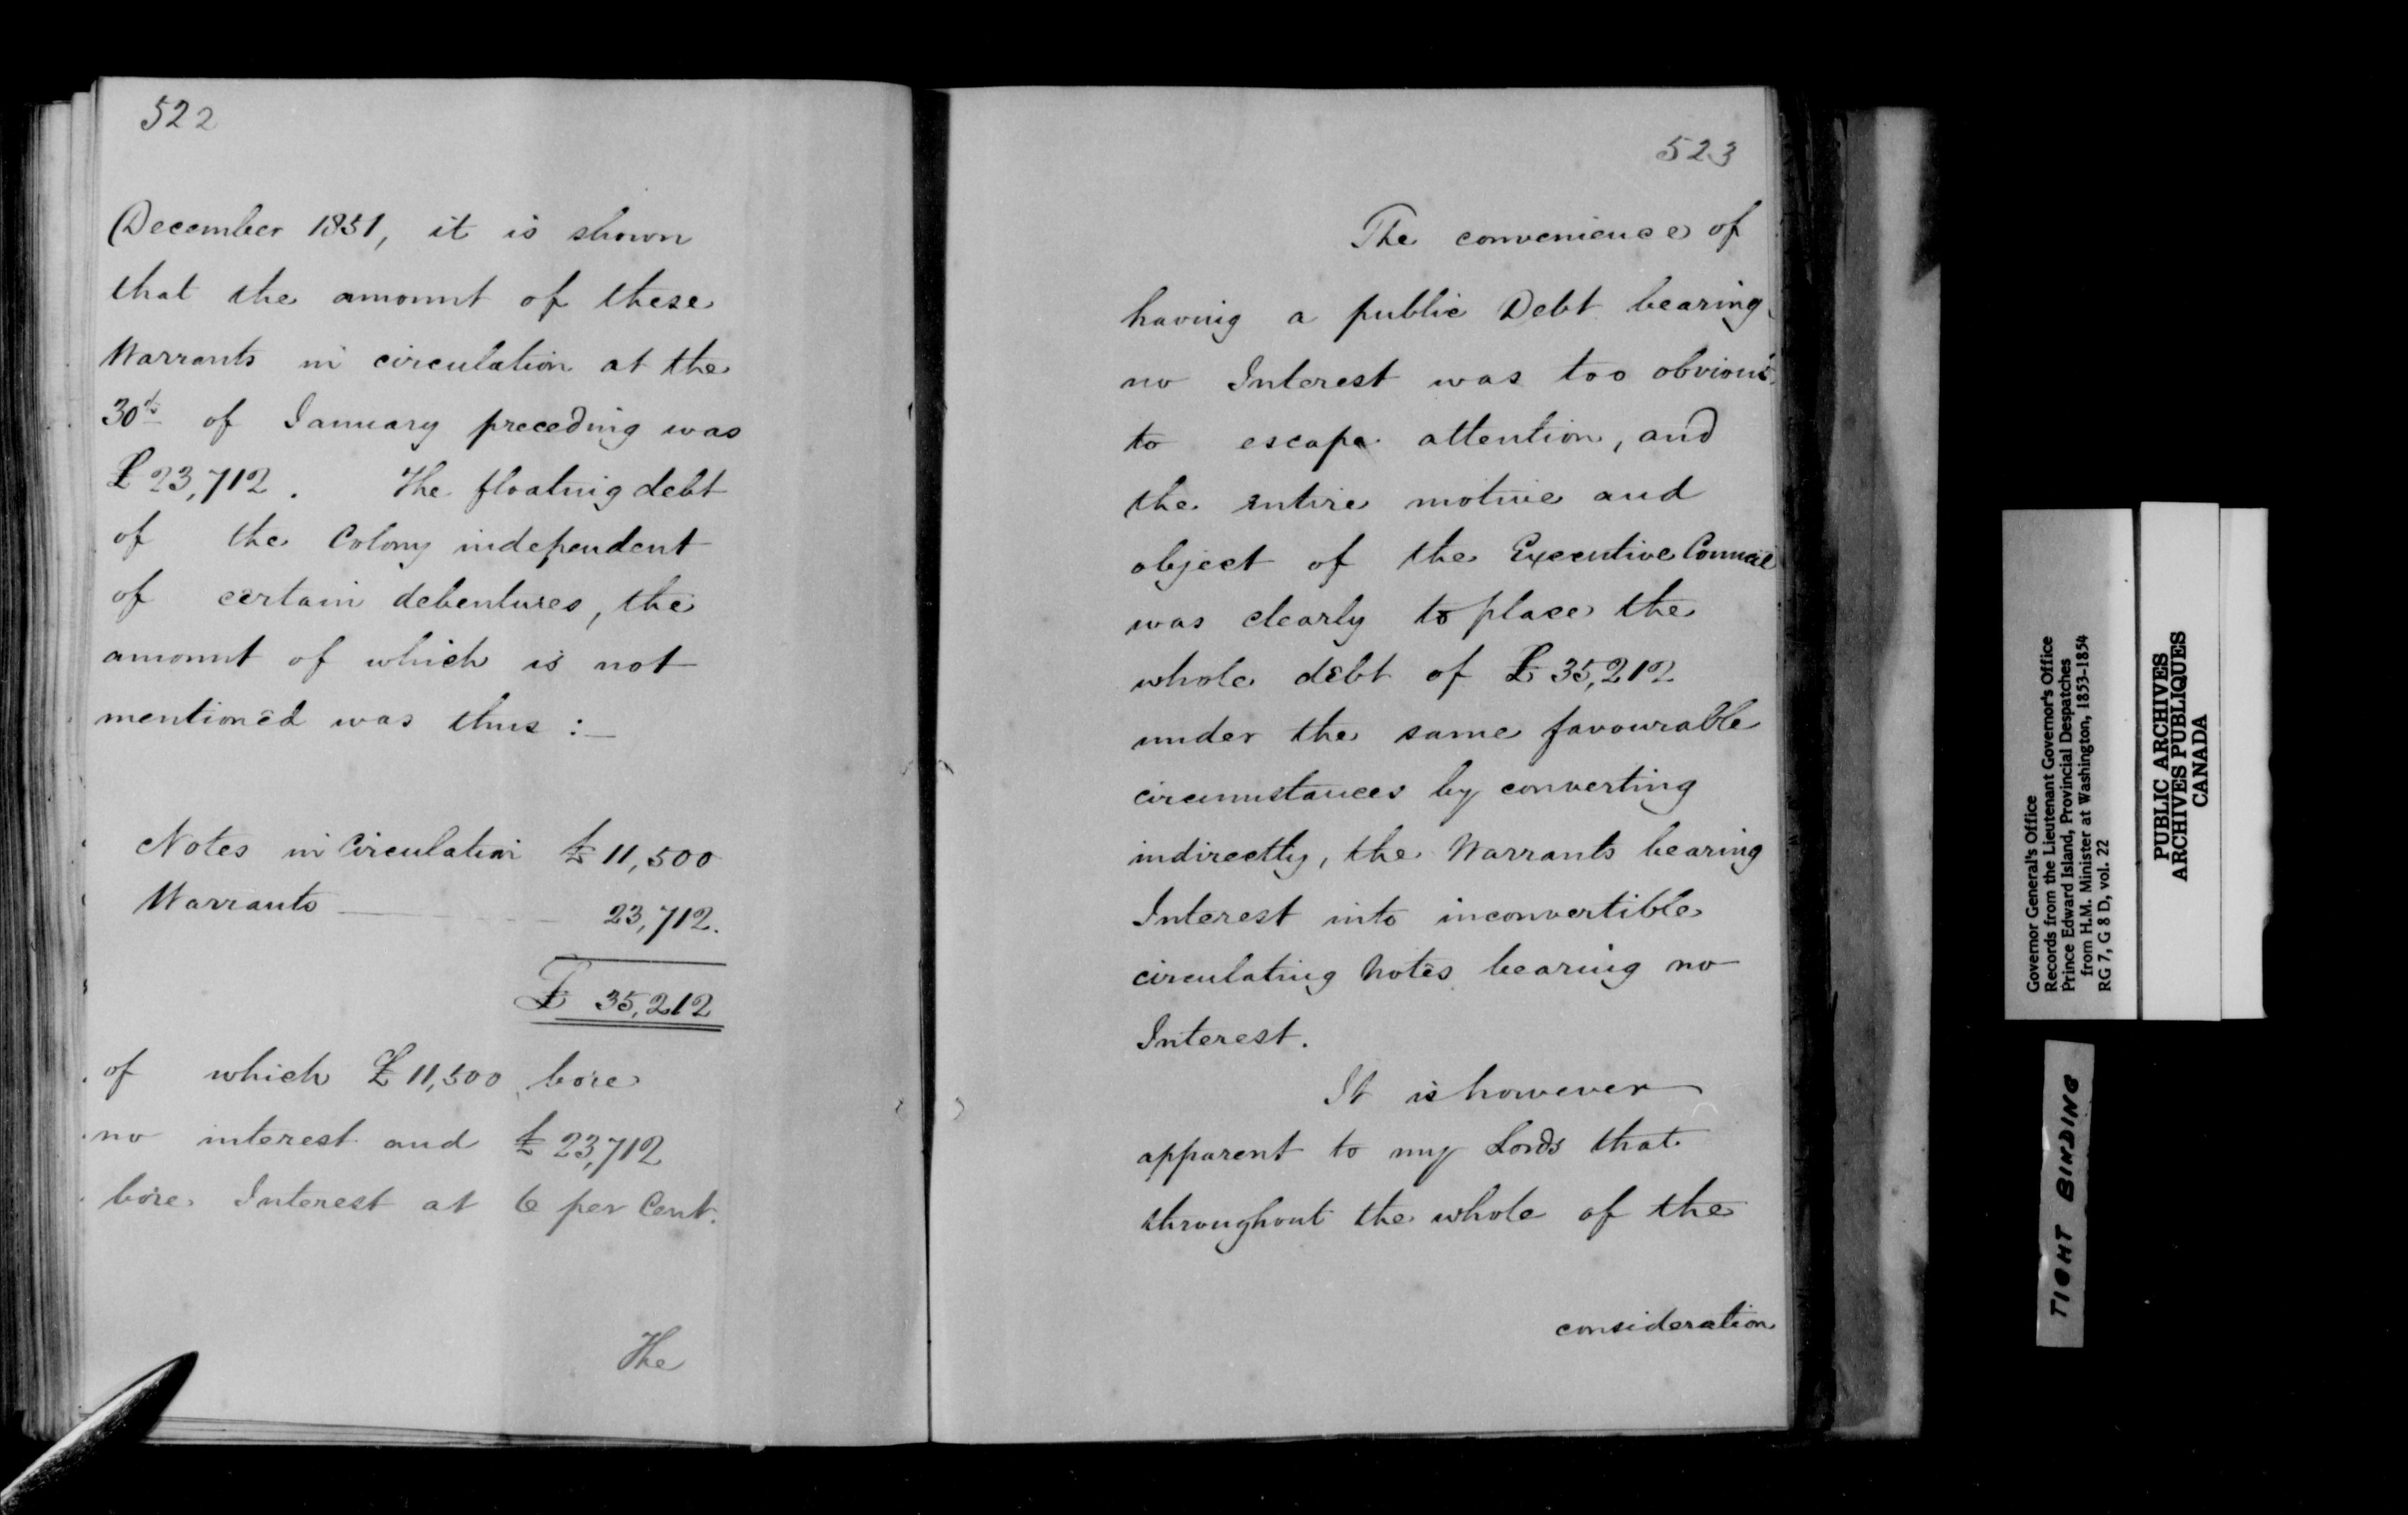 522
December 1851, it is shown
that the amount of these
Warrants in circulation at the
30th of January preceding was
£23,712. The floating debt
of the Colony independent
of certain debentures, the
amount of which is not
mentioned was thus :—
Notes in Circulation £11,500
Warrants 23,712.
£ 35,212
of which £11,500 bore
no interest and £23,712
bore Interest at 6 per Cent.
The
523
The convenience of
having a public Debt bearing
no Interest was too obvious
to escape attention, and
the entire motive and
object of the Executive Council
was clearly to place the
whole debt of £35,212
under the same favourable
circumstances by converting
indirectly, the Warrants bearing
Interest into inconvertible
circulating Notes bearing no
Interest.
It is however
apparent to my Lords that
throughout the whole of the
consideration
Governor General's Office
Records from the Lieutenant Governor's Office
Prince Edward Island, Provincial Despatches
from H.M. Minister at Washington, 1853-1854
RG 7, G 8 D, vol. 22
PUBLIC ARCHIVES
ARCHIVES PUBLIQUES
CANADA
TIGHT BINDING